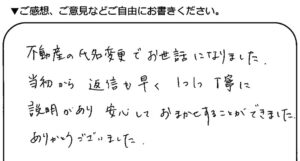 ▼ご感想、ご意見などご自由にお書きください。
不動産の代名変更でお世話になりました。
当初から返信も早く 1つ1つ丁寧に
説明があり 安心しておまかせすることができました。
ありがとうございました。